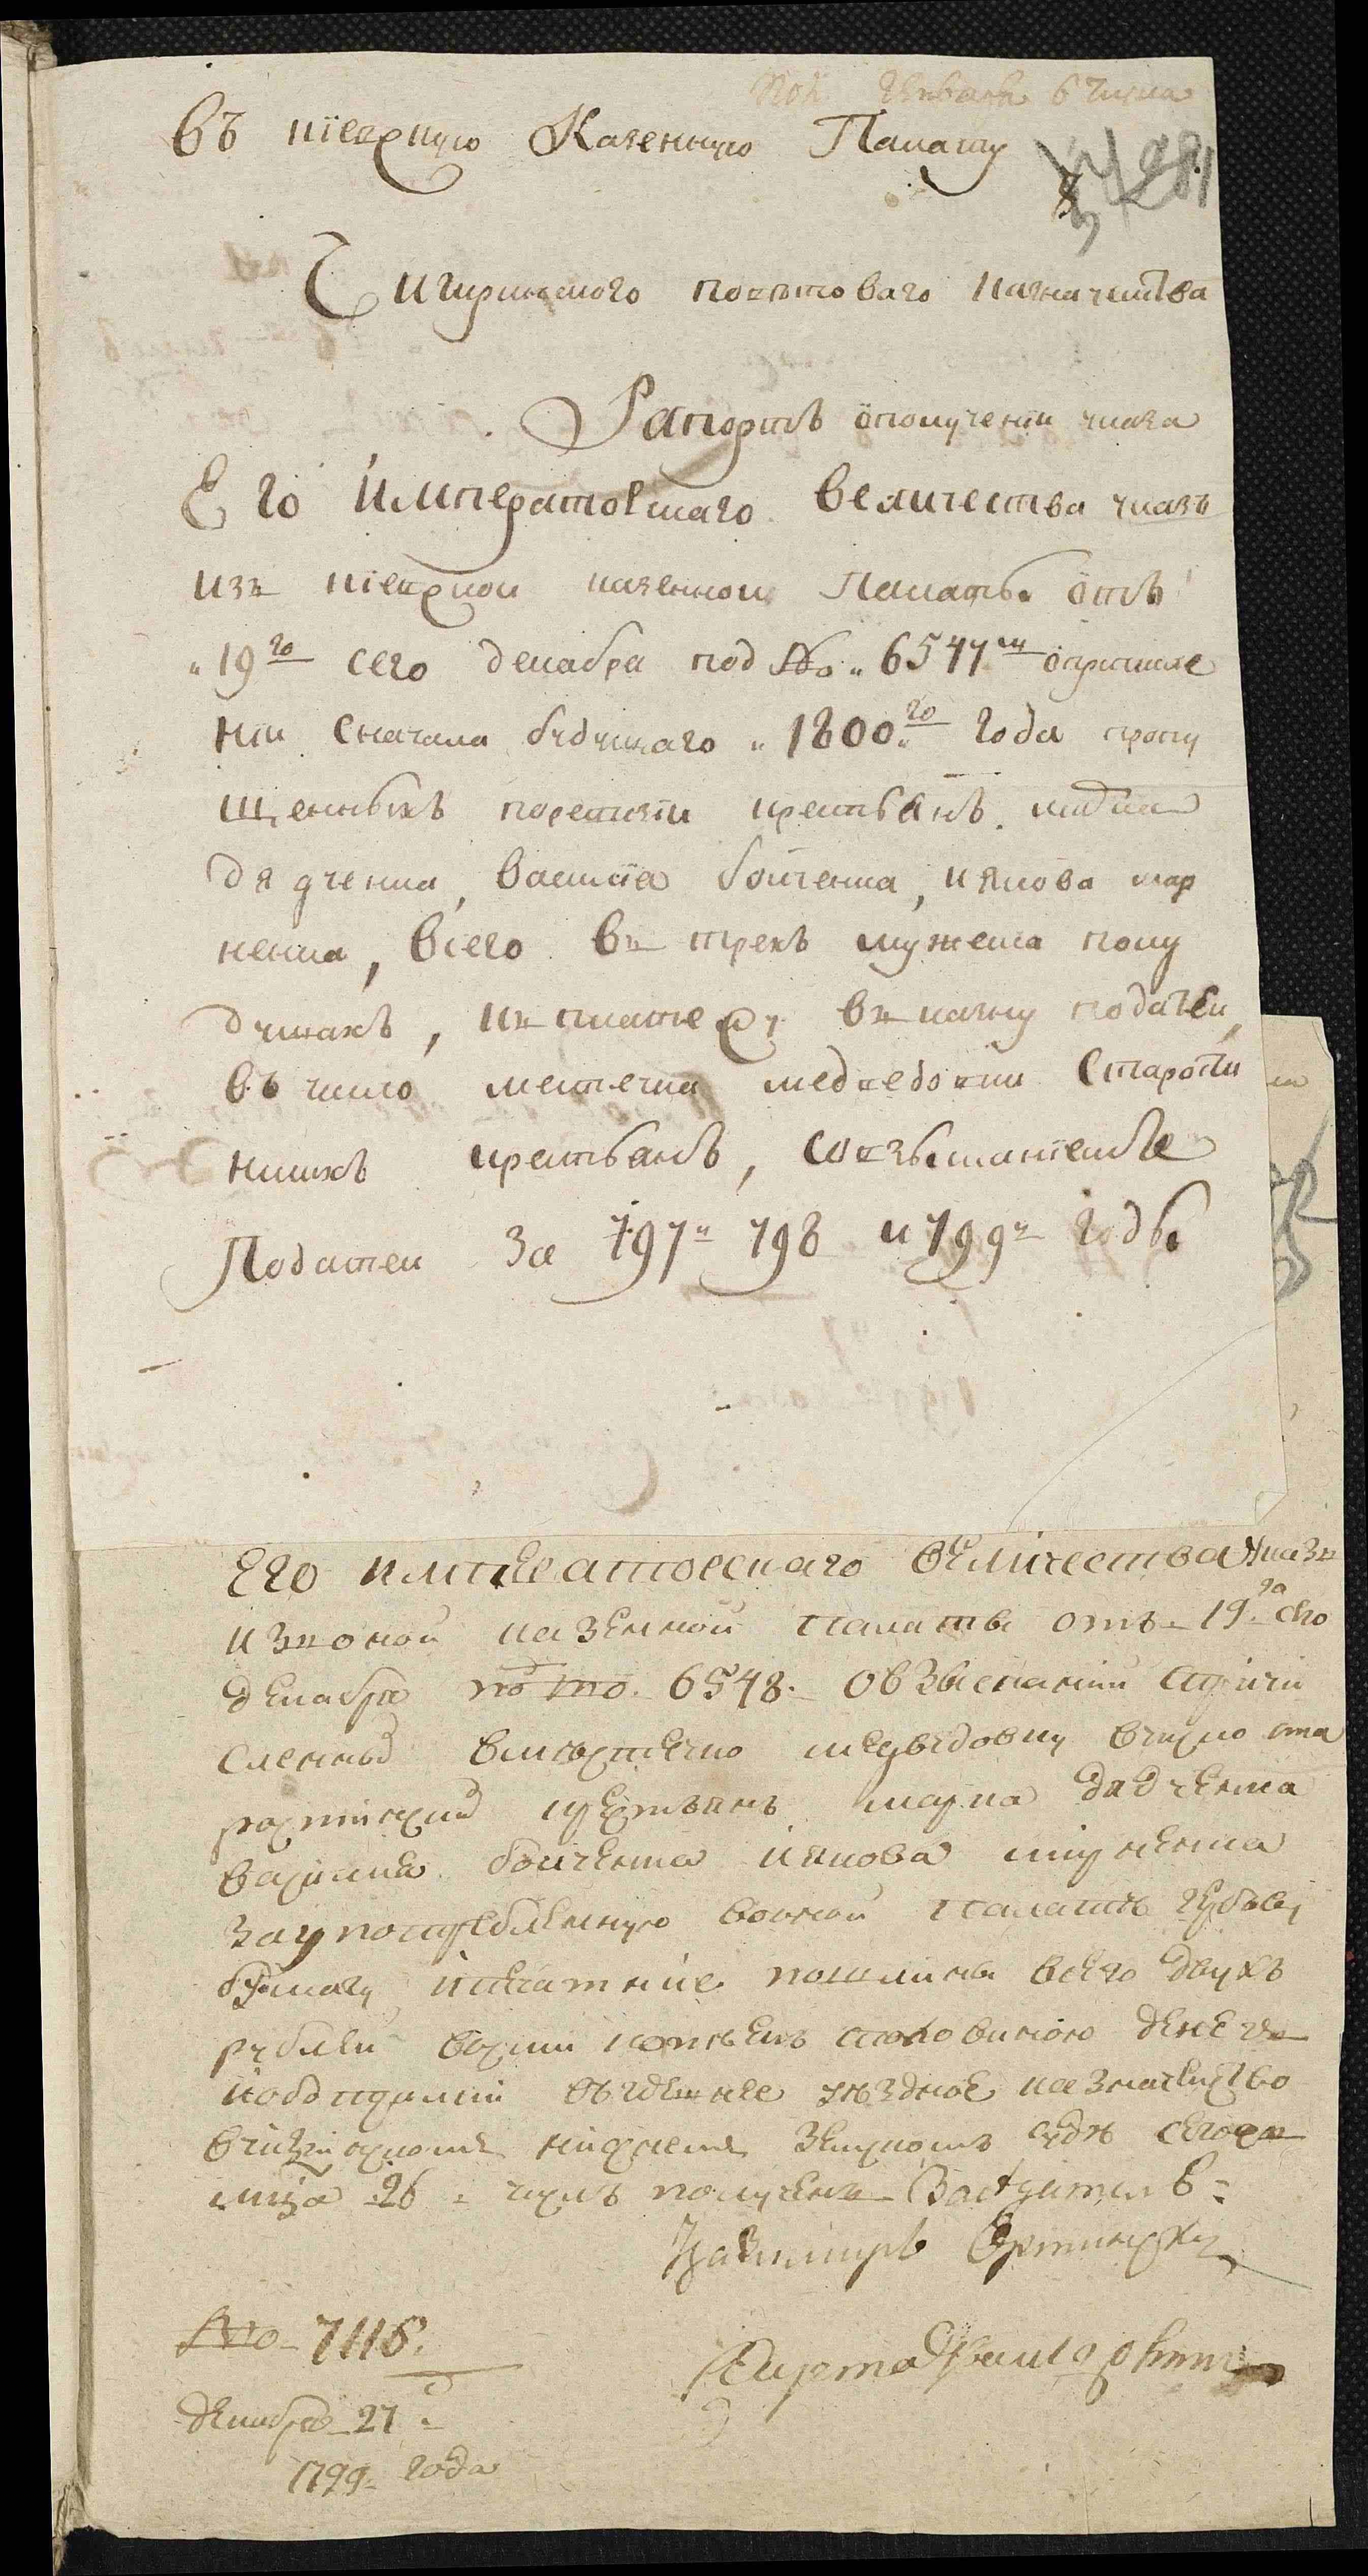 Пол. Генваря 6 числа
Въ Кіевскую Казенную Палату
281
Чигиринскаго поветоваго казначейства
Рапортъ ополученіи указа
Его Императорскаго величества указъ
изъ кіевской казенной Палаты отъ
19го сего декабря под No 6547м опричисле
ніи сначала будущаго 1800го года пропу
щенныхъ поревизіи крестьянъ
дядченка, василія бойченка, иякова
ненка, всего въ трехъ мужеска полу
душахъ, къ платежу въ казну податей,
въ число местечка медведовки старости
нскихъ крестьянъ, совзысканіемъ
Податей за 797й 798 и 799й годы
Его императорскаго величества указъ
изъоной казенной палаты отъ 19го сего
декабря по No 6548. овзысканіи спричи
сленныхъ вместечко медведовку вчисло ста
ростинскихъ крестьянъ марка дядченка
василия бойченка иякова
заупотребленную воной палате гербовую
бумагу ипечатные пошлины всего двухъ
рублей копеекъ споловиною денегъ
въ уездное казначейство
нижнемъ земскомъ суде сегожъ
мца 26 числъ полученъ
No 7116.
декабря 27
1799 года